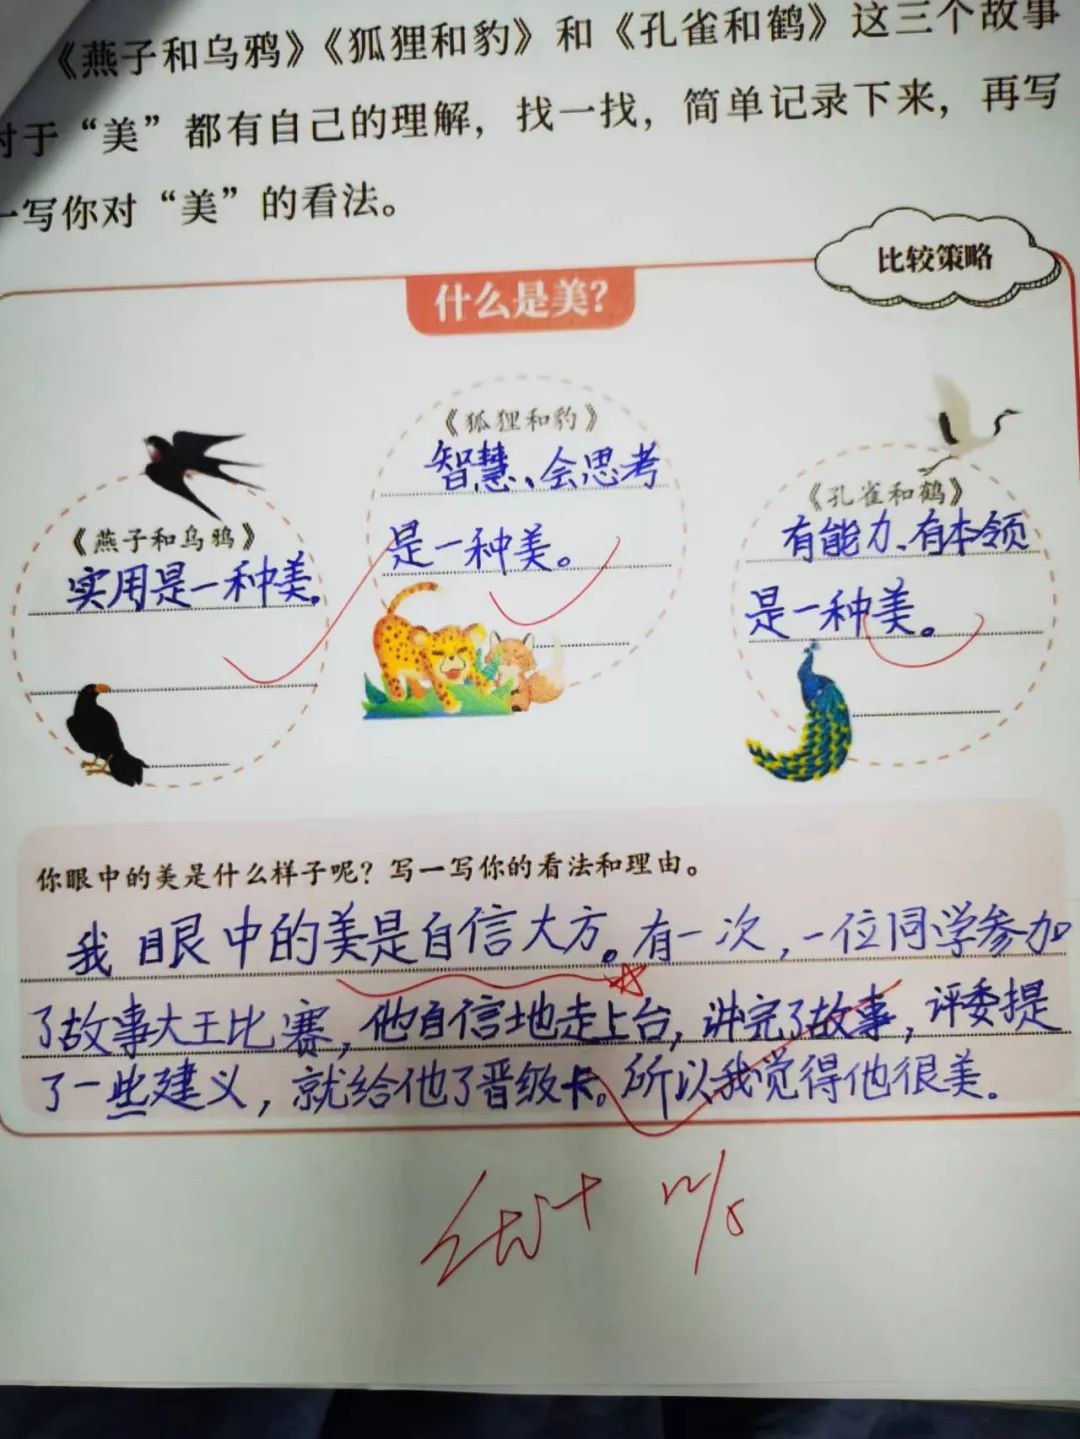 《燕子和乌鸦》《狐狸和豹》和《孔雀和鹤》这三个故事
对于“美”都有自己的理解，找一找，简单记录下来，再写
一写你对“美”的看法。
比较策略
什么是美？
《燕子和乌鸦》
实用是一种美。
《狐狸和豹》
智慧、会思考
是一种美。
《孔雀和鹤》
有能力、有本领
是一种美。
你眼中的美是什么样子呢？写一写你的看法和理由。
我眼中的美是自信大方。有一次，一位同学参加
了故事大王比赛，他自信地走上台，讲完了故事，评委提
了一些建议，就给他了晋级卡。所以我觉得他很美。